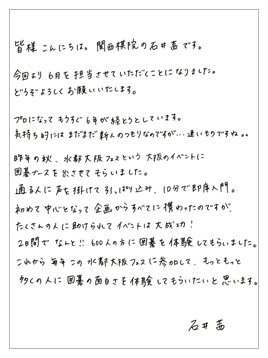 皆様 こんにちは。関西棋院の石井茜です。
今回より 6月を担当させていただくことになりました。
どうぞよろしくお願いいたします。
プロになってもうすぐ6年が経とうとしています。
気持ち的にはまだまだ新人のつもりなのですが…速いものですね。。
昨年の秋、水都大阪フェスという大阪のイベントに
囲碁ブースを出させてもらいました。
通る人に声を掛けて引っぱり込み、10分で即席入門。
初めて中心となって企画からすべてに携わったのですが、
たくさんの人に助けられてイベントは大成功!
2日間でなんと!!600人の方に囲碁を体験してもらいました。
これから毎年この水都大阪フェスに参加して、もっともっと
多くの人に囲碁の面白さを体験してもらいたいと思います。
石井 茜